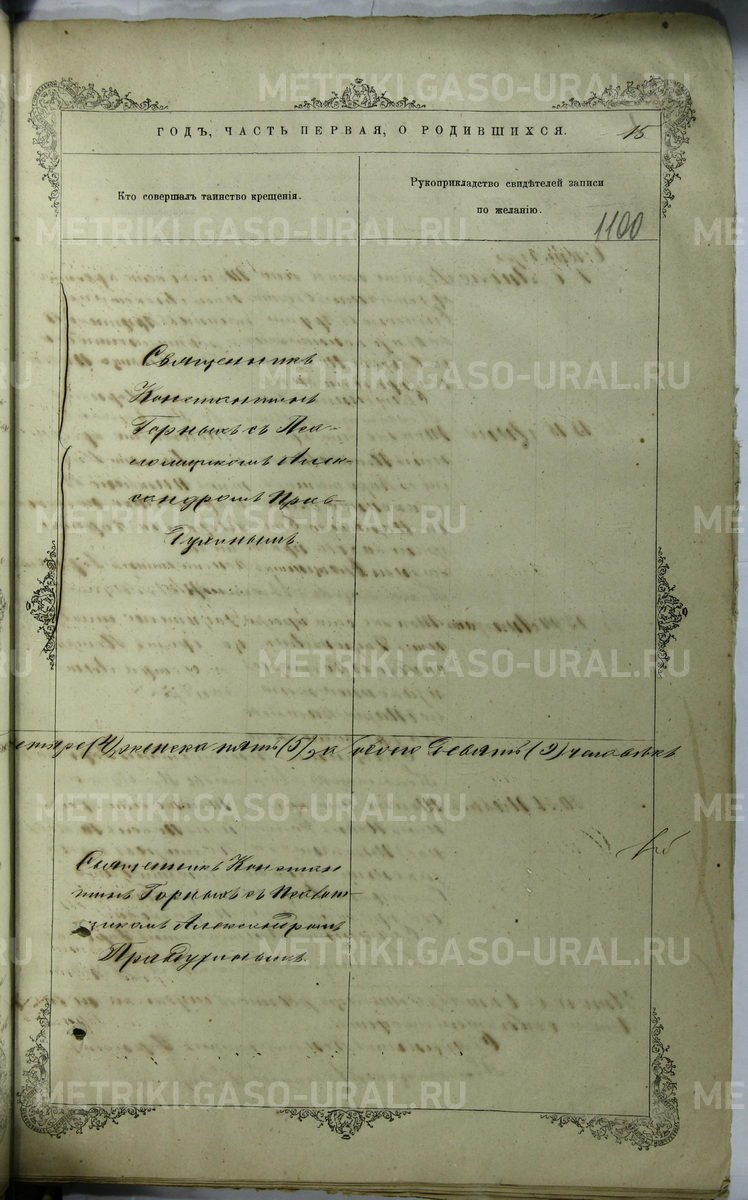 ГОДЪ, ЧАСТЬ ПЕРВАЯ, О РОДИВШИХСЯ.
15
Кто совершалъ таинство крещенія.
Рукоприкладство свидѣтелей записи
по желанію.
1100
Священникъ
Константинъ
Горныхъ съ Пса-
ломщикомъ Алек-
сандромъ Прав-
духинымъ.
(4), женска пять (5), а всего девять (9) человѣкъ
Священникъ Констан
тинъ Горныхъ съ Псалом-
щикомъ Александромъ
Правдухинымъ.
METRIKI.GASO-URAL.RU